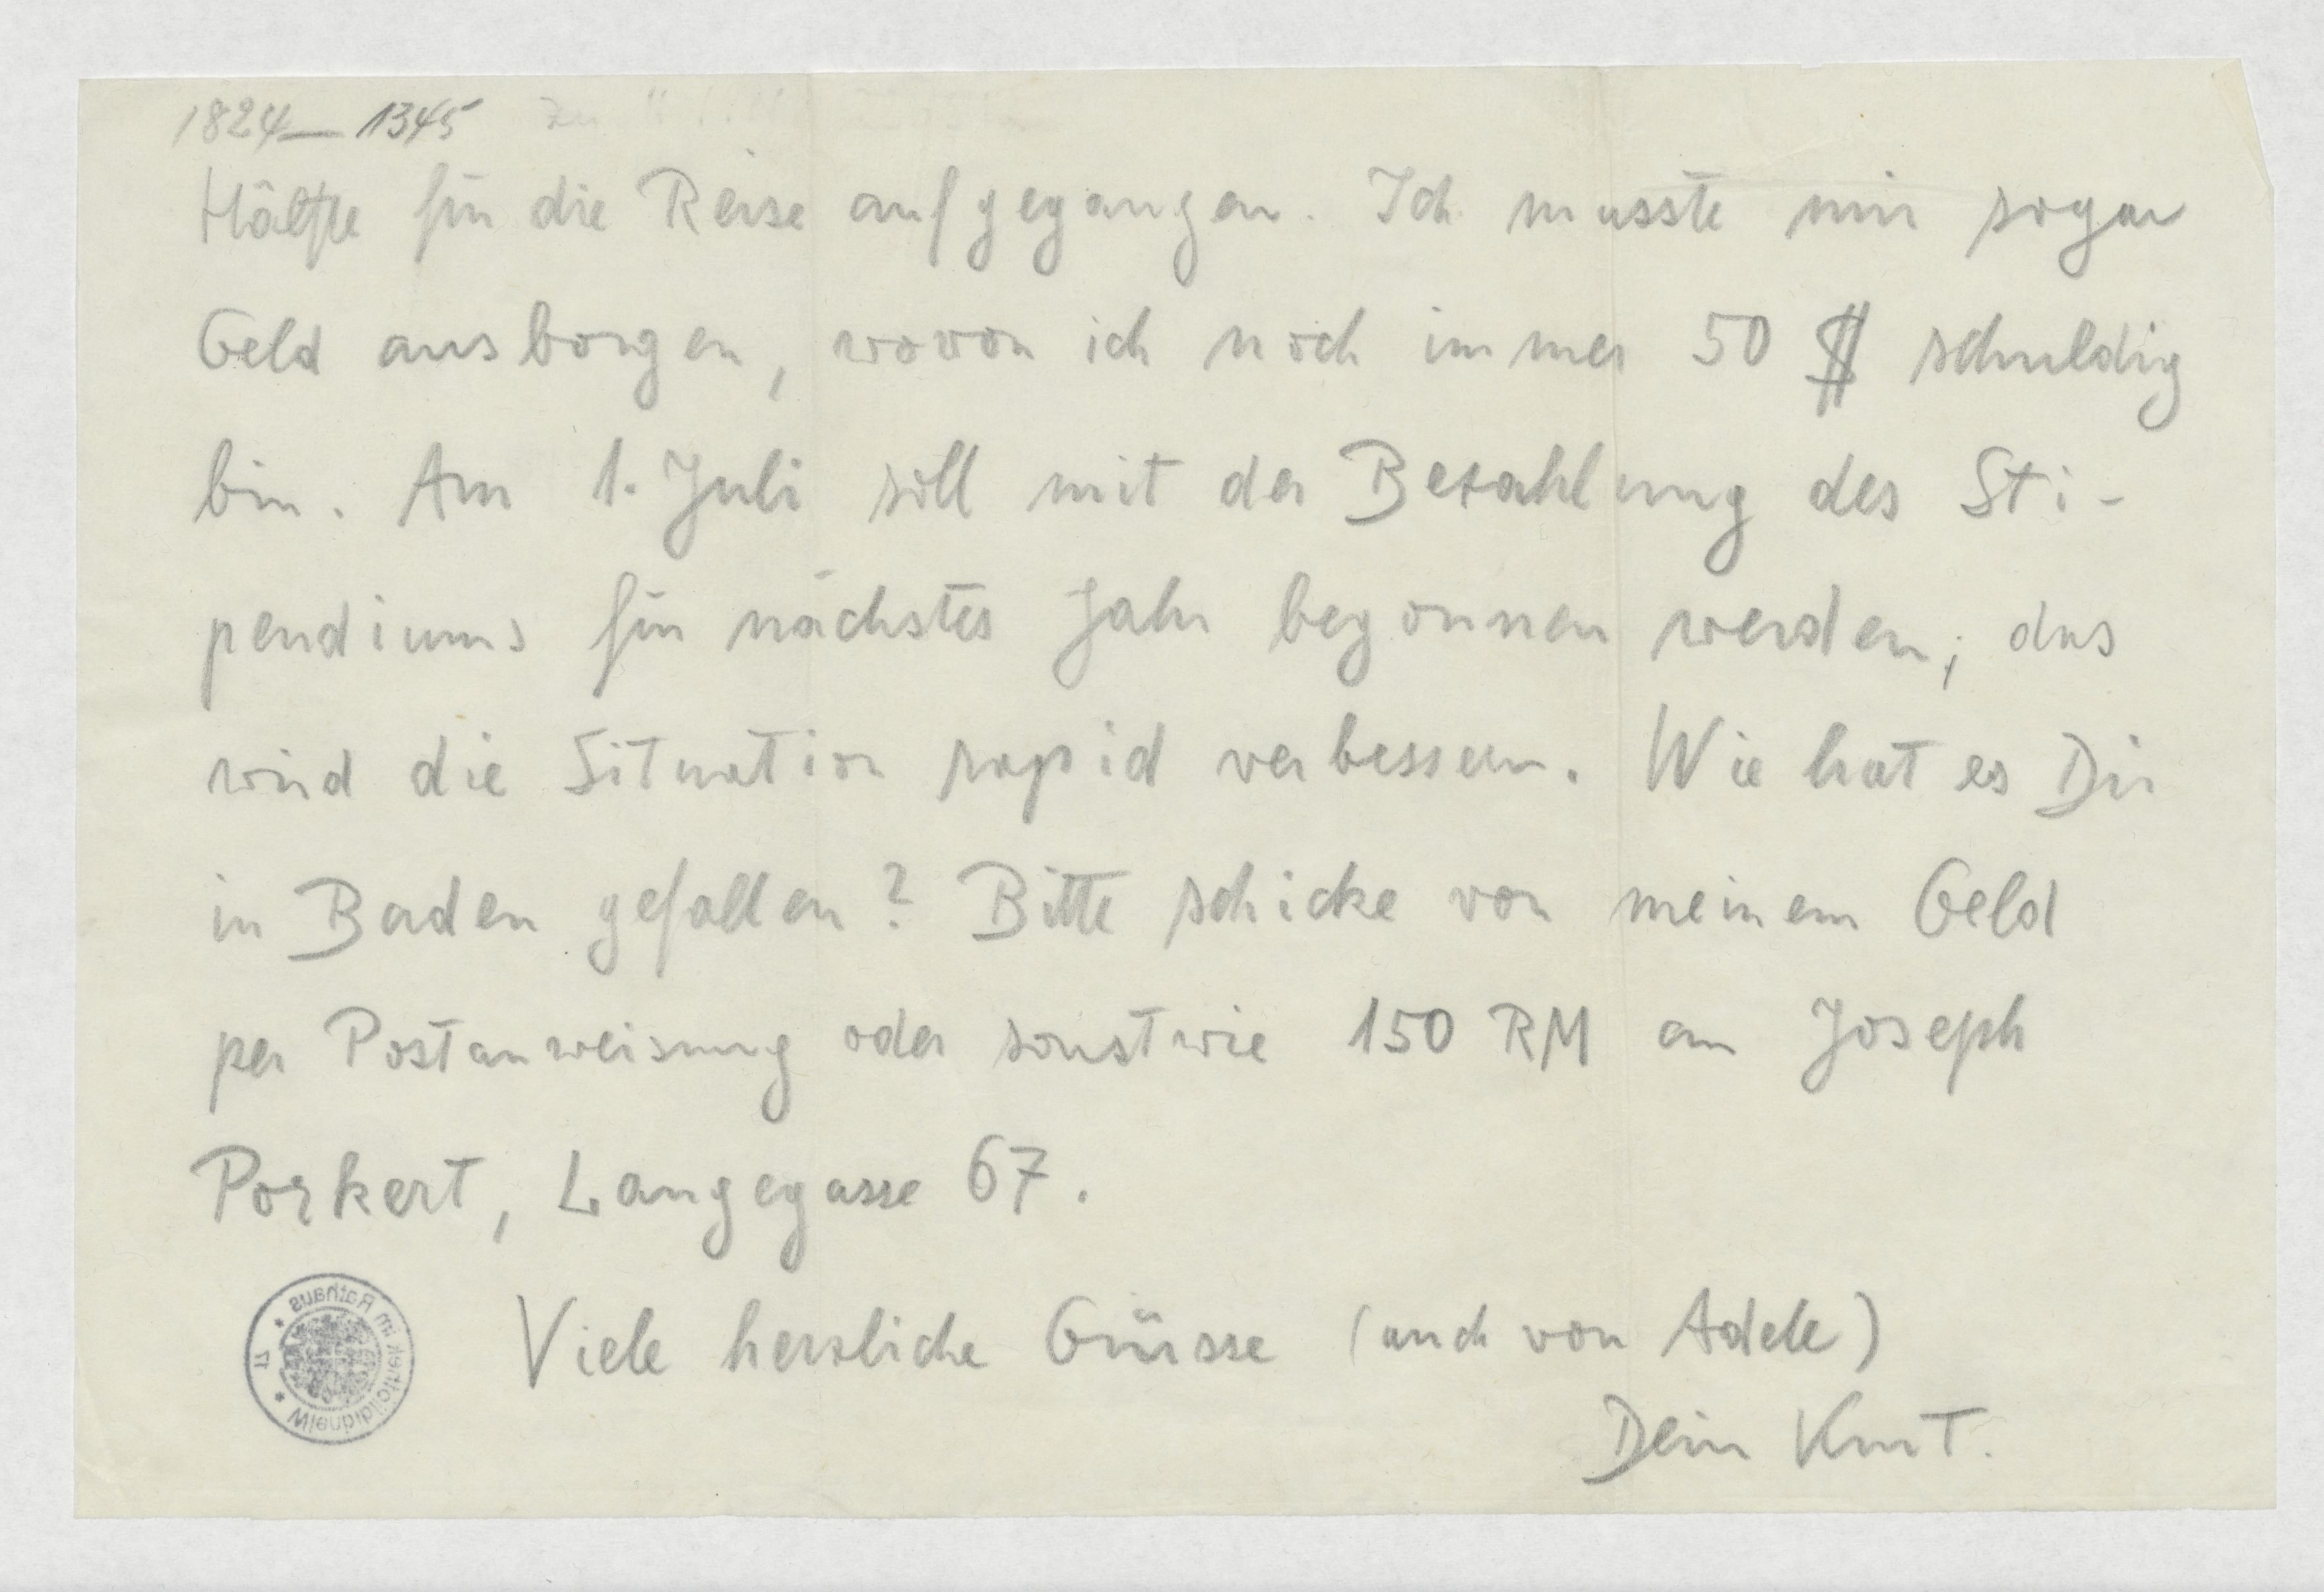 1824–1345
Hälfte für die Reise aufgegangen. Ich musste mir sogar
Geld ausborgen, wovon ich noch immer 50 $ schuldig
bin. Am 1. Juli soll mit der Bezahlung des Sti-
pendiums für nächstes Jahr begonnen werden; das
wird die Situation rapid verbessern. Wie hat es Dir
in Baden gefallen? Bitte schicke von meinem Geld
per Postanweisung oder sonstwie 150 RM an Joseph
Porkert, Langegasse 67.
Viele herzliche Grüsse (auch von Adele)
Dein Kurt.
Wienbibliothek im Rathaus